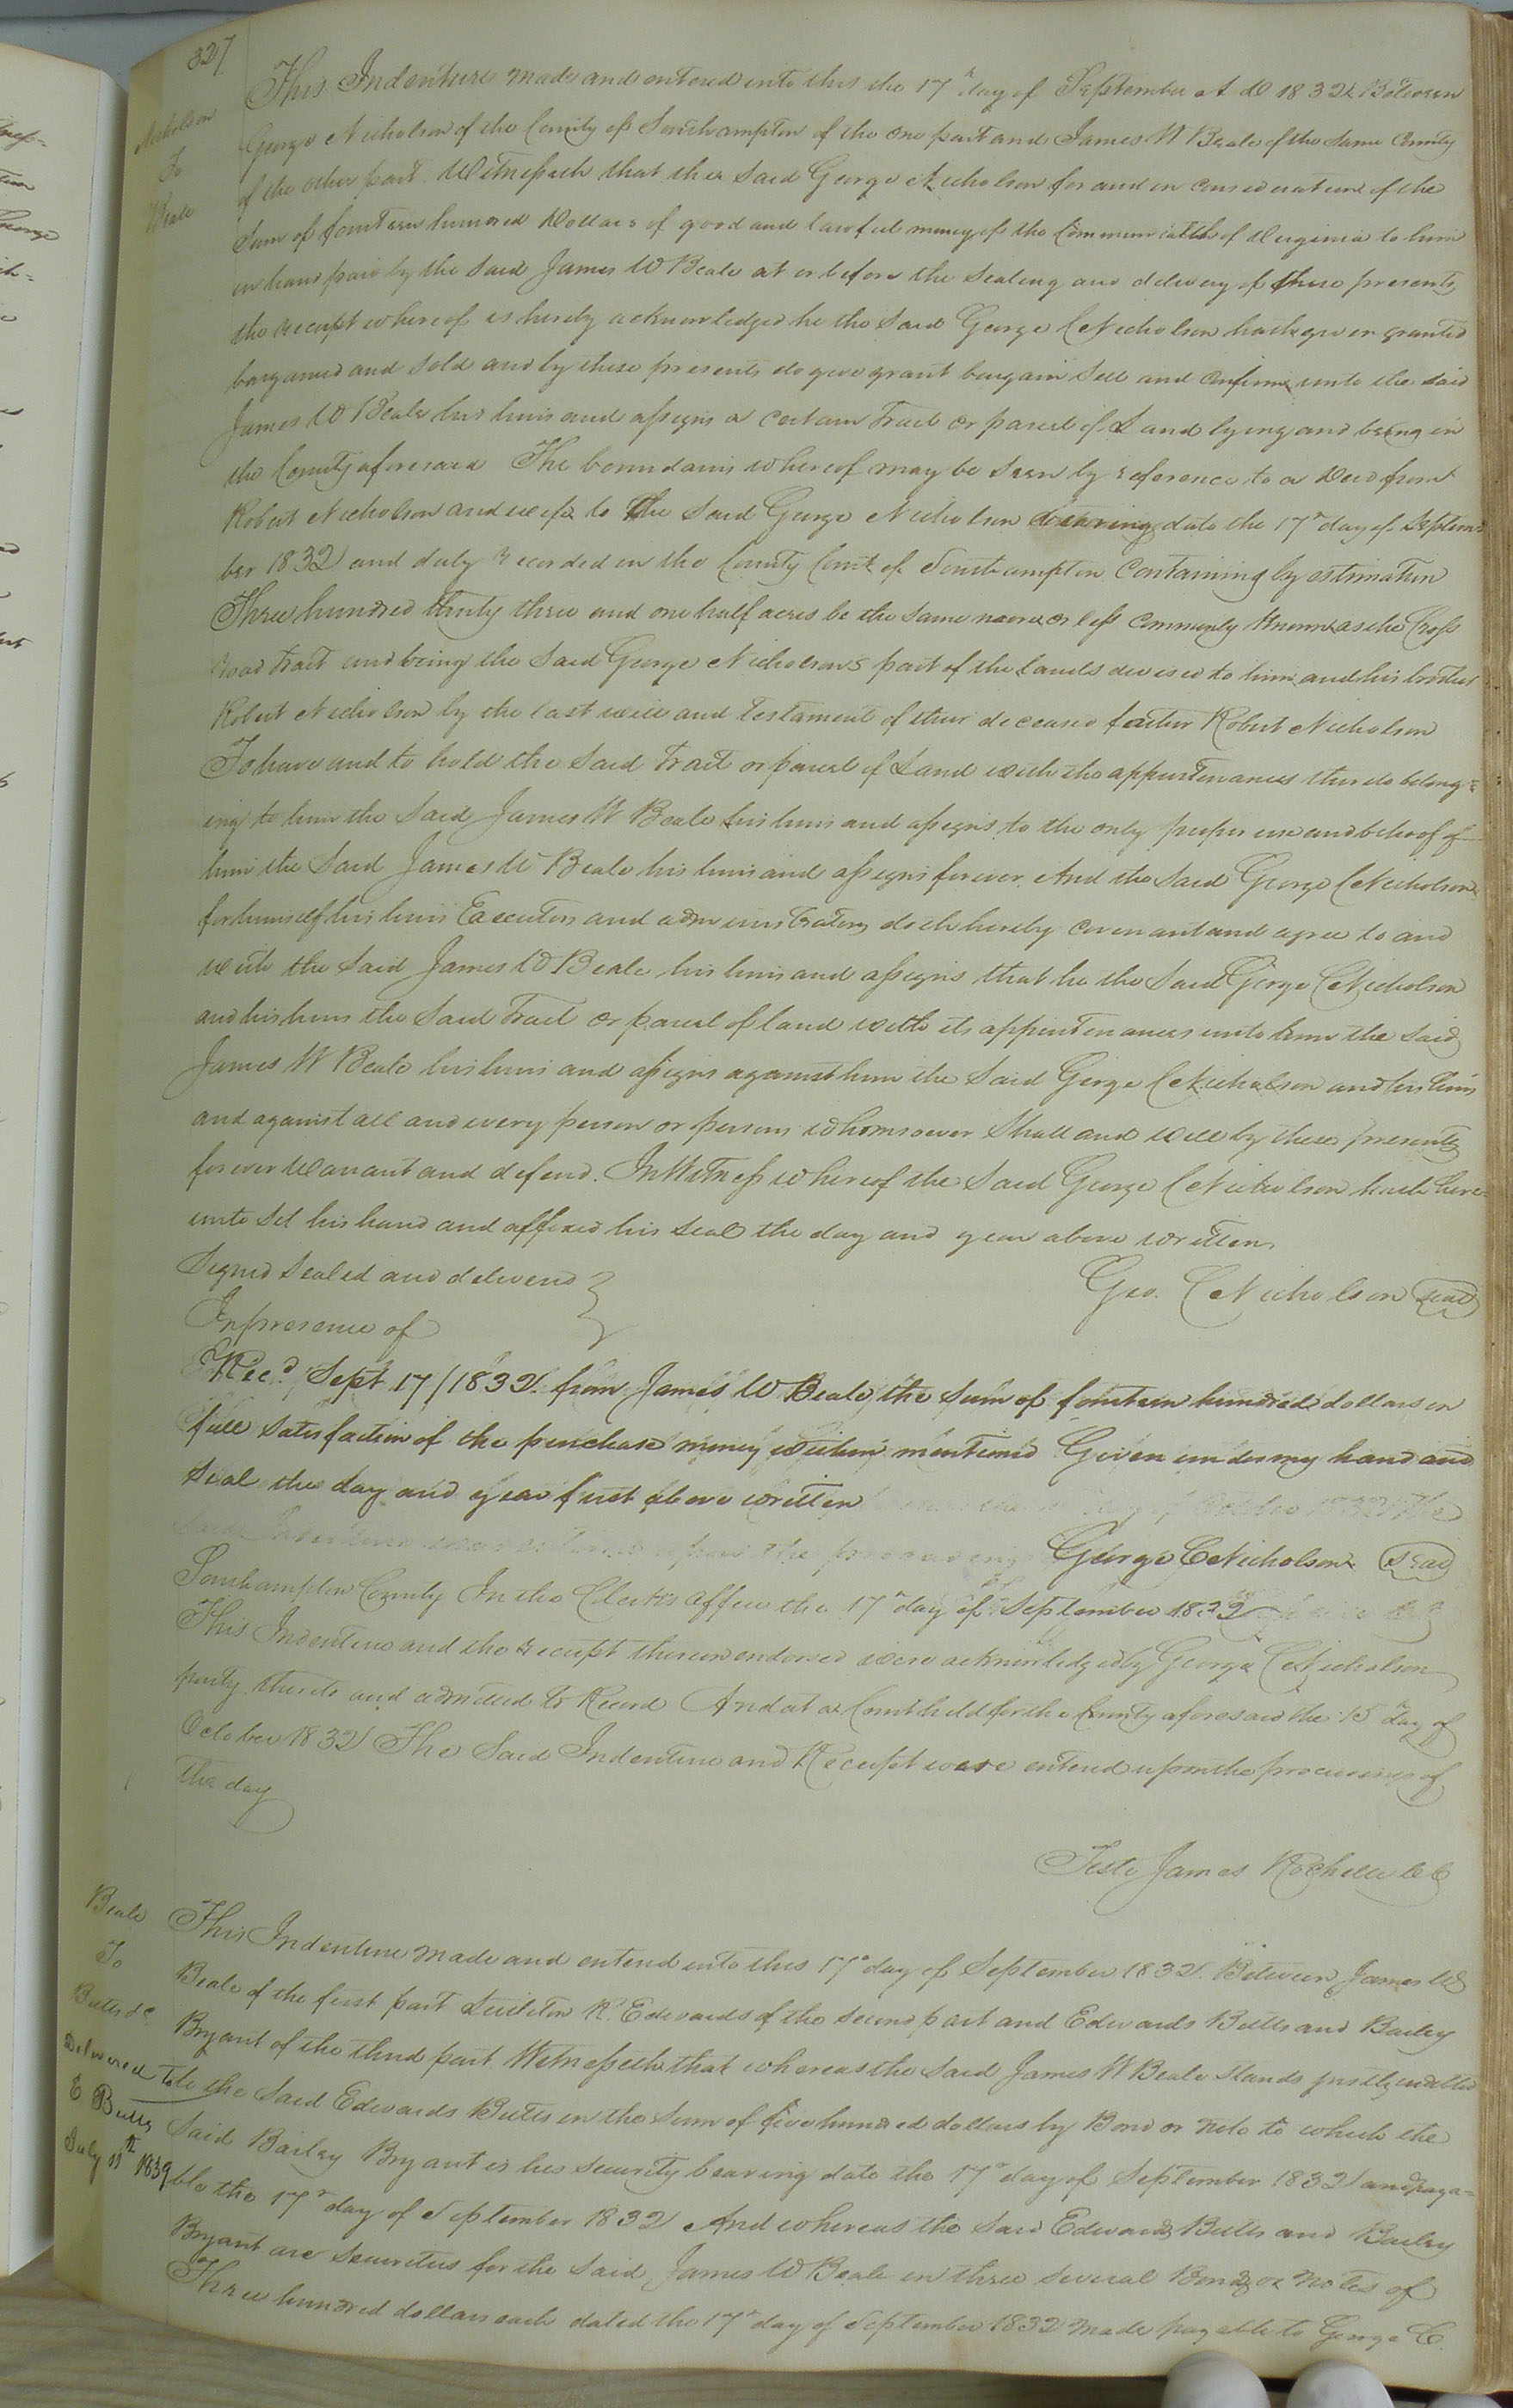 327
Nicholson
To
Beale
This Indenture made and entered into this the 17th day of September A D 1832 Between
George Nicholson of the County of Southampton of the one part and James W Beale of the same County
of the other part Witnesseth that the said George Nicholson for and in consideration of the
Sum of fourteen hundred Dollars of good and lawful money of the Commonwealth of Virginia to him
in hand paid by the said James W Beale at or before the sealing and delivery of these presents
the receipt whereof is hereby acknowledged he the said George C Nicholson hath given granted
bargained and sold and by these presents do give grant bargain sell and confirm unto the said
James W Beale his heirs and assigns a certain Tract or parcel of Land lying and being in
the County aforesaid The boundaries whereof may be seen by reference to a Deed from
Robert Nicholson and wife to the said George Nicholson bearing date the 17th day of Septem
ber 1832 and duly recorded in the County Court of Southampton Containing by estimation
Three hundred thirty three and one half acres be the same more or less commonly known as the Cross
road tract and being the said George Nicholsons part of the lands devised to him and his brother
Robert Nicholson by the last will and Testament of their deceased father Robert Nicholson
To have and to hold the said tract or parcel of Land with the appurtenances thereto belong=
ing to him the said James W Beale his heirs and assigns to the only proper use and behoof of
him the said James W Beale his heirs and assigns forever. And the said George C Nicholson
for himself his heirs Executors and administrators doth hereby covenant and agree to and
with the said James W Beale his heirs and assigns that he the said George C Nicholson
and his heirs the said Tract or parcel of land with its appurtenances unto him the said
James W Beale his heirs and assigns against him the said George C Nicholson and his heirs
and against all and every person or persons whomsoever shall and will by these presents
forever Warrant and defend. In Witness whereof the said George C Nicholson hath here=
unto set his hand and affixed his seal the day and year above written
Signed sealed and delivered
Geo. C Nicholson seal
In presence of
Recd Sept 17/1832 from James W Beale the sum of fourteen hundred dollars in
full satisfaction of the purchase money within mentioned Given under my hand and
seal the day and year first above written
George C Nicholson seal
Southampton County In the Clerks office the 17th day of September 1832
This Indenture and the receipt thereon endorsed were acknowledged by George C Nicholson
party thereto and admitted to Record And at a Court held for the County aforesaid the 15th day of
October 1832 The said Indenture and Receipt were entered upon the proceedings of
the day
Teste James Rochelle C C
Beale
To
Butts &c
Delivered to
E Butts
July 11th 1839
This Indenture made and entered into this 17th day of September 1832 Between James W
Beale of the first part Littleton R. Edwards of the second part and Edwards Butts and Bailey
Bryant of the third part Witnesseth that whereas the said James W Beale stands justly indebted
to the said Edwards Butts in the sum of five hundred dollars by Bond or note to which the
said Bailey Bryant is his security bearing date the 17th day of September 1832 and paya=
ble the 17th day of September 1832 And whereas the said Edwards Butts and Bailey
Bryant are securities for the said James W Beale in three several Bonds or notes of
Three hundred dollars each dated the 17th day of September 1832 made payable to George C.